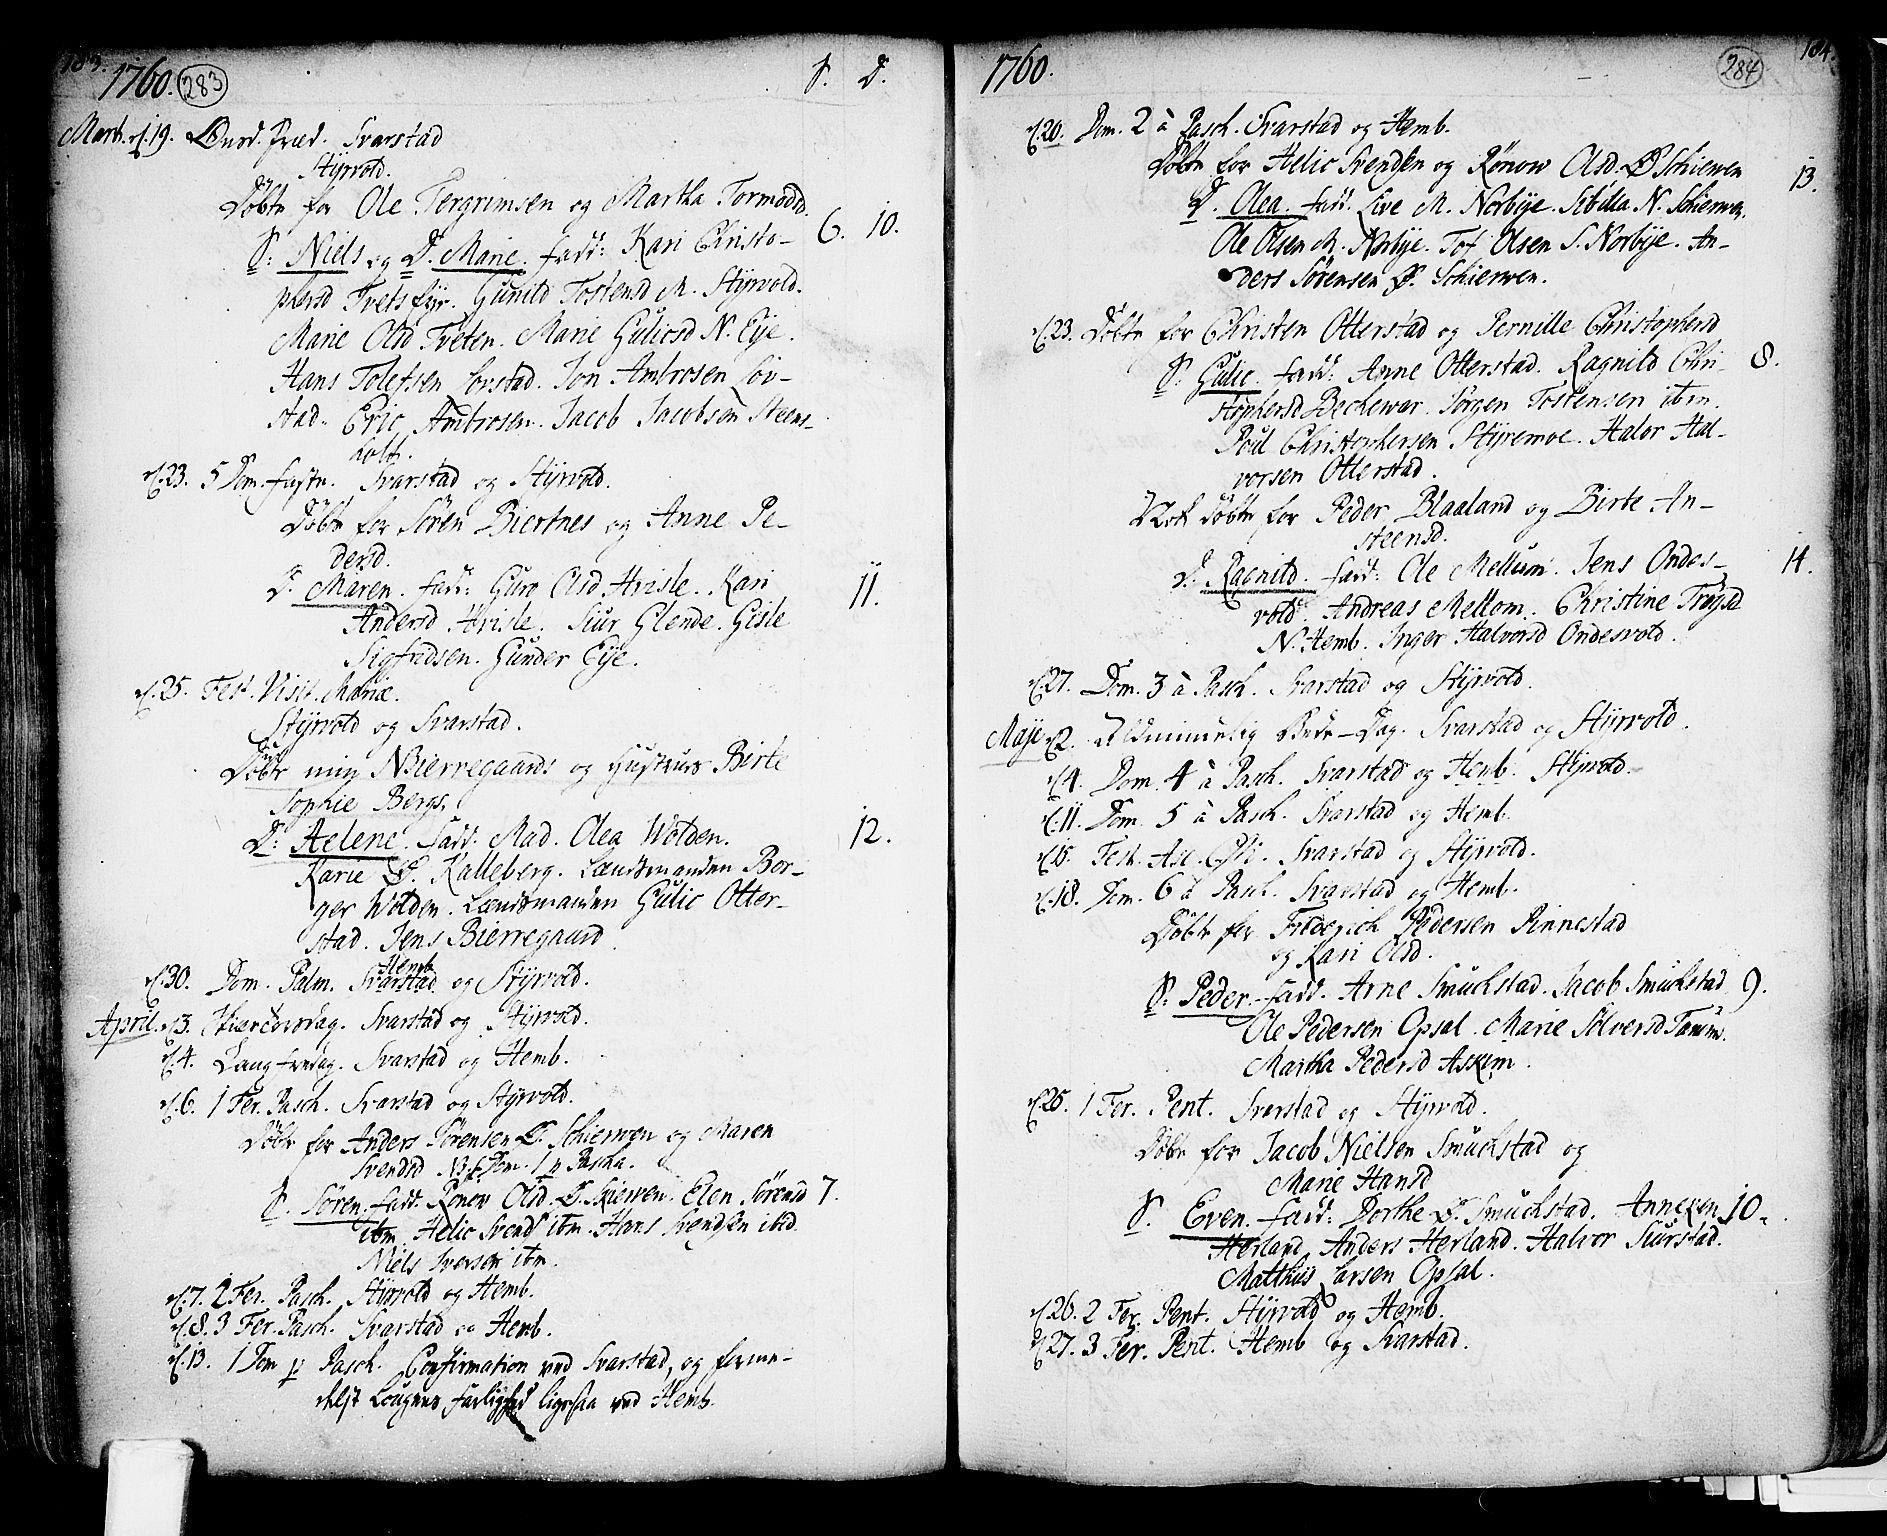 183.
1760. 283 S. D.
Mart. d. 19. Onsd. Præd. Svarstad
Styrvold.
Döbte for Ole Tergrimsen og Martha Tormodsd.
S: Niels og D. Marie. fadd: Kari Christo- 6. 10.
phersd Tvetsfyr. Gunild Tostensd M. Styrvold.
Marie Olsd Tveten. Marie Gulicsd N. Eye.
Hans Tolefsen Lovstad. Jon Ambrosen Lov-
stad. Eric Ambrosen. Jacob Jacobson Steens-
holt.
d. 23. 5 Dom. fastn. Svarstad og Styrvold.
Döbte for Sören Biertnes og Anne Pe-
dersd.
D. Maren. fadd: Guro Olsd Hvisle. Kari 11.
Andersd Hvisle. Siur Glende. Gisle
Sigfredsen. Gunder Eye.
d. 25. Fest. Visit. Mariæ.
Styrvold og Svarstad.
Döbte min NBierregaards og Hustrues Birte
Sophie Bergs.
D: Helene. fadd. Mad. Olea Wolden. 12.
Karie Ø. Kalleberg. Lændsmanden Bor-
ger Wolden. Lændsmanden Gulic Otter-
stad. Jens Bierregaard.
Hemb
d. 30. Dom. Palm. Svarstad og Styrvold.
April. d. 3. Skiærtorsdag. Svarstad og Styrvold.
d. 4. Langfredag. Svarstad og Hemb.
d. 6. 1 Fer. Pasch. Svarstad og Styrvold.
Döbte for Anders Sörensen Ø. Schierven og Maren
Svendsd NB. f. Dom. 1 p Pascha.
S. Sören. fadd. Rönow Olsd. Ø. Skierven. Elen Sörensd 7.
ibm. Helic Svends ibm. Hans Svendsen ibid.
Niels Iversen ibm.
d. 7. 2 Fer. Pasch. Styrvold og Hemb.
d. 8. 3 Fer. Pasch. Svarstad og Hemb.
d. 13. 1 Dom p. Pasch. Confirmation ved Svarstad, og forme-
delst Lougens farlighed ligesaa ved Hemb.
184.
1760. 284
d. 20. Dom. 2 à Pasch. Svarstad og Hemb.
Döbte for Helic Svendsen og Rönow Olsd. Ø Schierven 13.
D. Olea. fadd. Live M. Norbye. Sibilla N. Schierven.
Ole Olsen M. Norbye. Tof Olsen S. Norbye. An-
ders Sörensen Ø. Schierven.
d. 23. Döbte for Christen Otterstad og Pernille Christophersd
S. Gulic. fadd: Anne Otterstad. Ragnild Chri- 8.
stophersd Bechevar. Jörgen Tostensen ibm.
Poul Christophersen Styremoe. Halvor Hal-
vorsen Otterstad.
Nok döbte for Peder Blaaland og Birte An-
steensd.
D. Ragnild. fadd: Ole Mellum. Jens Ondes- 14.
vold. Andreas Mellom. Christine Trogsd
N. Hemb. Inger Halvorsd Ondesvold.
d. 27. Dom. 3 à Pasch. Svarstad og Styrvold.
Maje d. 2. Aldmindelig Bede-Dag. Svarstad og Styrvold.
d. 4. Dom. 4 à Pasch. Svarstad og Hemb. Styrvold.
d. 11. Dom. 5 à Pasch. Svarstad og Hemb.
d. 15. Fest. Asc. Chr. Svarstad og Styrvold.
d. 18. Dom. 6 à Pasch. Svarstad og Hemb.
Döbte for Friderich Pedersen Pinnestad
og Kari Olsd.
S. Peder. fadd. Arne Smuchstad. Jacob Smuchstad 9.
Ole Pedersen Opsal. Marie Solversd Tamm.
Martha Pedersd Askim.
d. 25. 1 Fer. Pent. Svarstad og Styrvold.
Döbte for Jacob Nielsen Smuchstad og
Marie Hansd
S. Even. fadd: Dorthe Ø. Smuchstad. Anne 10.
Herland, Anders Herland. Halvor Siurstad.
Matthiis Larsen Opsal.
d. 26. 2 Fer. Pent. Styrvold og Hemb.
d. 27. 3 Fer. Pent. Hemb og Svarstad.